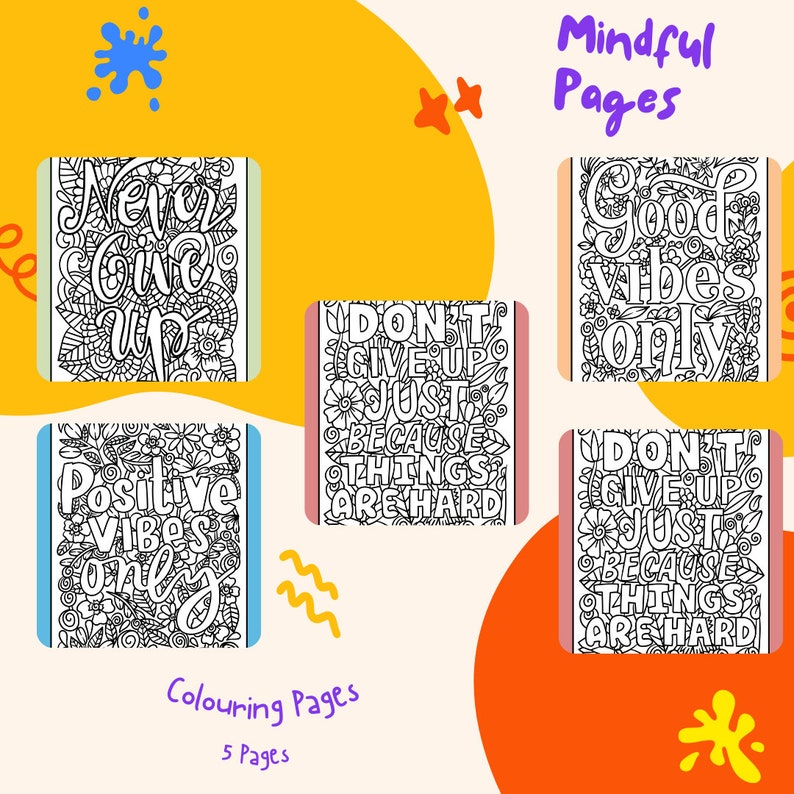 Mindful
Pages
Never
Give
up
Good
vibes
only
DON'T
GIVE UP
JUST
BECAUSE
THINGS
ARE HARD
Positive
VIBES
only
DON'T
GIVE UP
JUST
BECAUSE
THINGS
ARE HARD
Colouring Pages
5 Pages